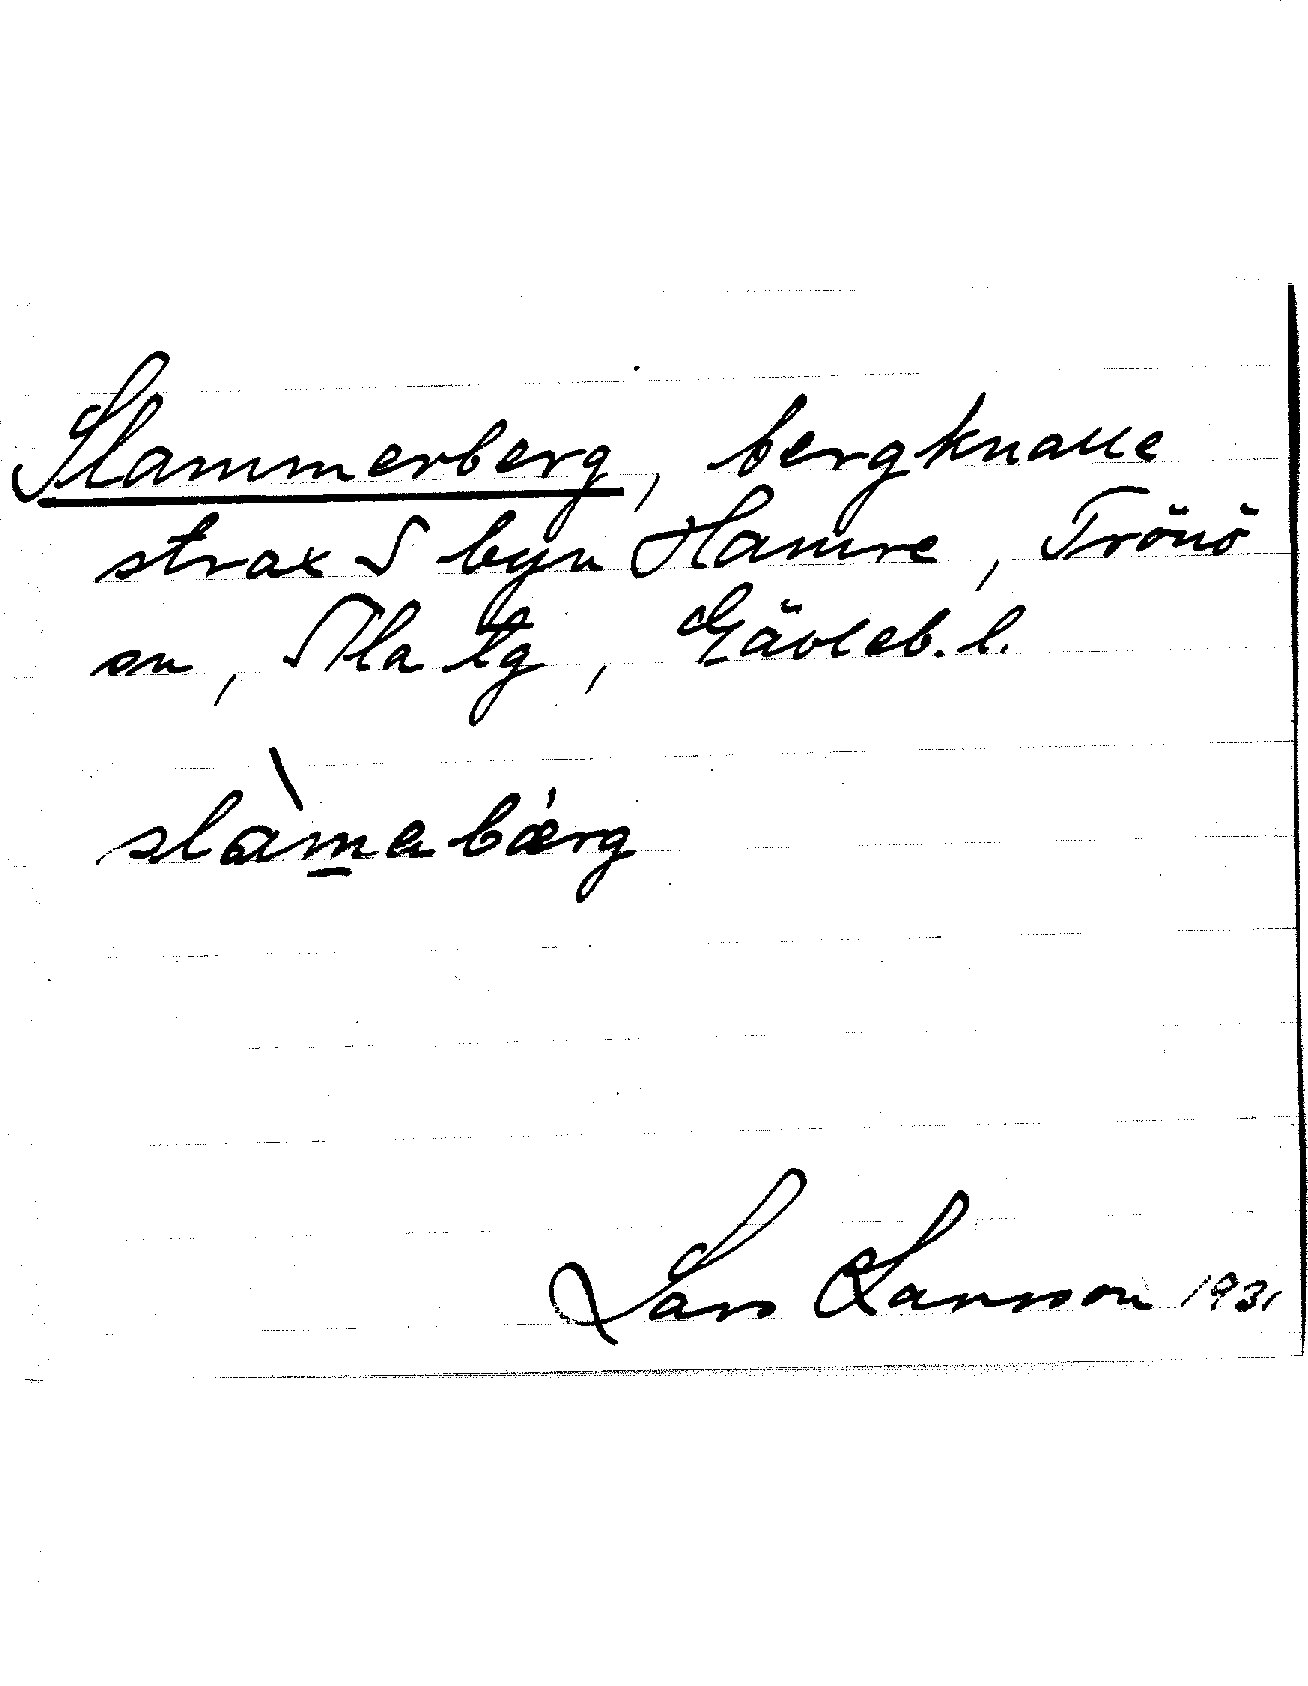 Slammerberg, bergknalle
strax S byn Hamre, Trönö
sn, Sla tg, Gävleb. l.
slàmabǽrg
Lars Larsson 1931